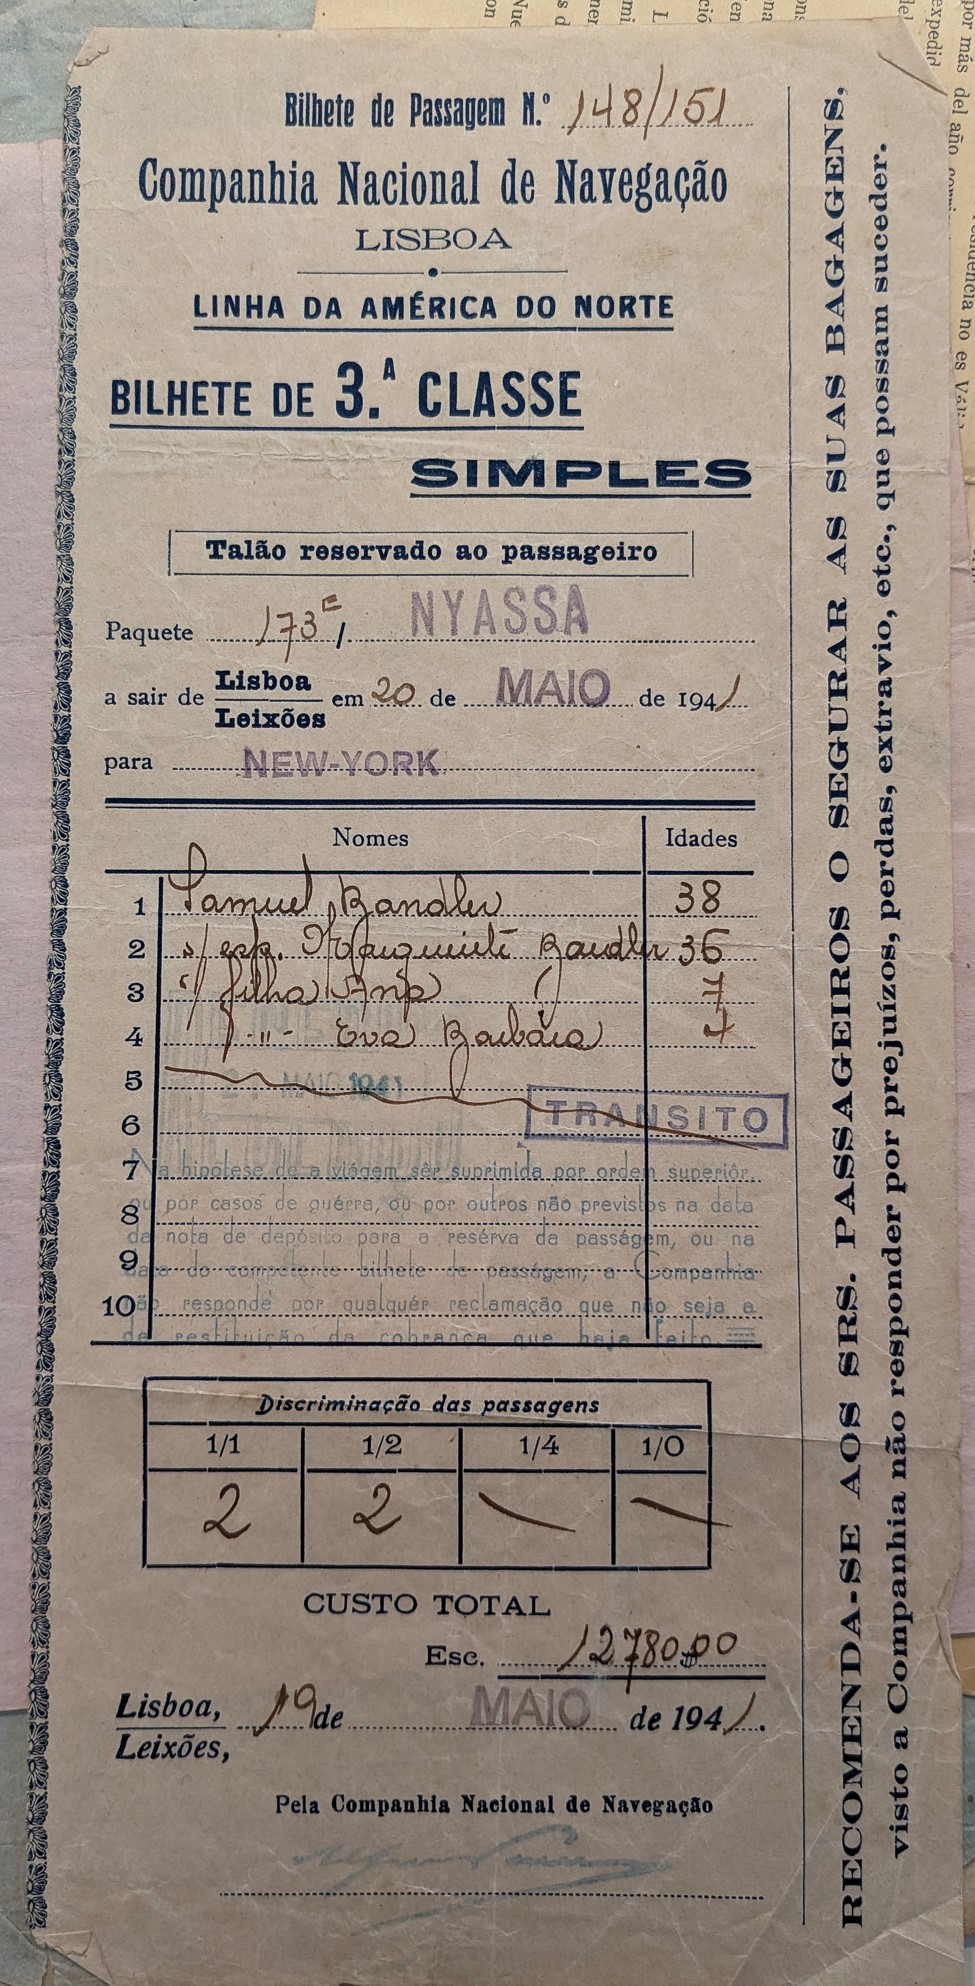 Bilhete de Passagem N.º 148/151
Companhia Nacional de Navegação
LISBOA
LINHA DA AMÉRICA DO NORTE
BILHETE DE 3.ª CLASSE
SIMPLES
Talão reservado ao passageiro
Paquete 173 NYASSA
a sair de Lisboa em 20 de MAIO de 1941
Leixões
para NEW-YORK
Nomes Idades
1 Samuel Bandler 38
2 s/ esp. Marguerite Bandler 36
3 s/ filha Ana 7
4 -"- Eva Barbára 4
5 MAIO 1941
TRANSITO
6
7 Na hipotese de a viagem sêr suprimida por ordem superiôr,
8 ou por casos de guérra, ou por outros não previstos na data
da nota de depósito para a resérva da passágem, ou na
9 data do competente bilhete de passágem, a Companhia
10 não responde por qualquér reclamação que não seja a
de restituição da cobrança que haja feito
Discriminação das passagens
1/1 1/2 1/4 1/0
2 2 — —
CUSTO TOTAL
Esc. 12780$00
Lisboa, 19 de MAIO de 1941.
Leixões,
Pela Companhia Nacional de Navegação
RECOMENDA-SE AOS SRS. PASSAGEIROS O SEGURAR AS SUAS BAGAGENS,
visto a Companhia não responder por prejuízos, perdas, extravio, etc., que possam suceder.
por más del año
expedid
residencia no es Váli